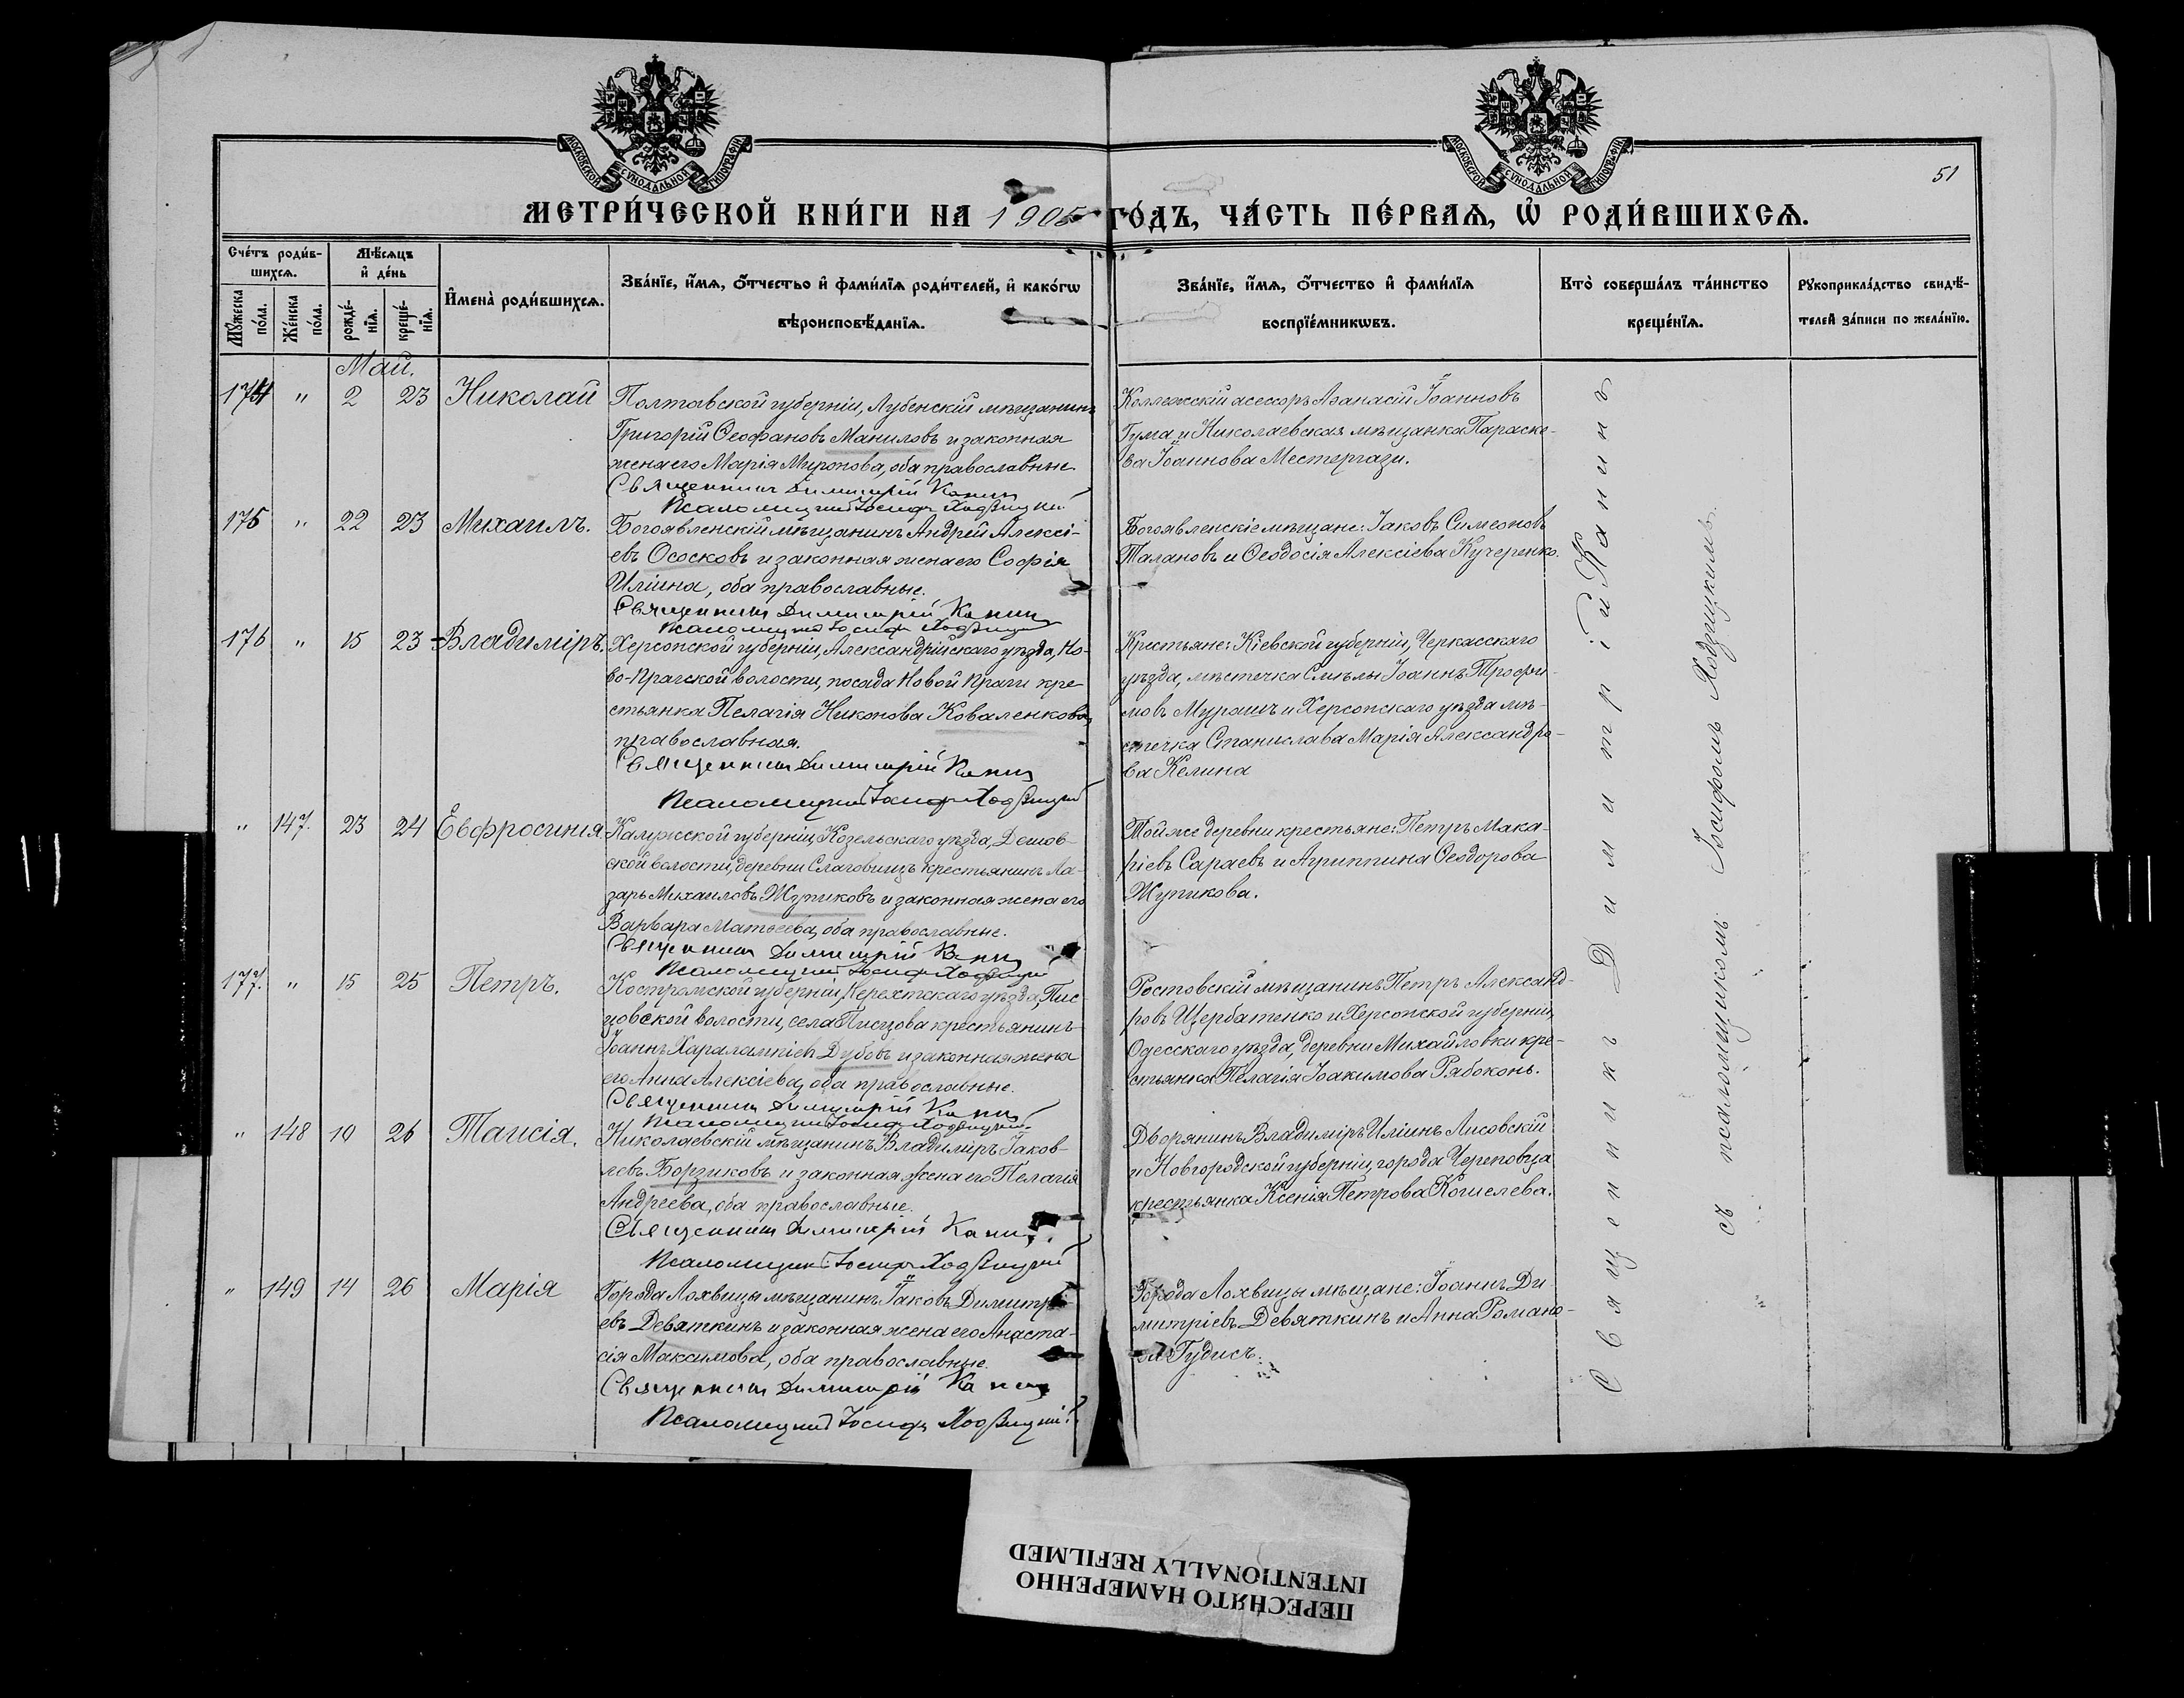 МОСКОВСКОЙ СѴНОДАЛЬНОЙ ТИПОГРАФІИ
МОСКОВСКОЙ СѴНОДАЛЬНОЙ ТИПОГРАФІИ
51
МЕТРИ́ЧЕСКОЙ КНИ́ГИ НА 1905 ГО́ДЪ, ЧА́СТЬ ПЕ́РВАѦ, Ѡ҆ РОДИ́ВШИХСѦ.
Сче́тъ роди́в-
шихсѧ.
Мѣ́сѧцъ
и҆ де́нь
Мꙋ́жеска
по́ла.
Же́нска
по́ла.
рожде́-
нїѧ.
креще́-
нїѧ.
И҆мена̀ роди́вшихсѧ.
Зва́нїе, и҆́мѧ, ѻ҆́тчество и҆ фами́лїѧ роди́телей, и҆ како́гѡ
вѣроисповѣ́данїѧ.
Зва́нїе, и҆́мѧ, ѻ҆́тчество и҆ фами́лїѧ
воспрїе́мникѡвъ.
Кто̀ соверша́лъ та́инство
креще́нїѧ.
Рꙋкоприкла́дство свидѣ́-
телей за́писи по жела́нїю.
Май.
174 " 2 23 Николай
Полтавской губерніи, Лубенскій мѣщанинъ
Григорій Ѳеофановъ Маниловъ и законная
жена его Марія Миронова, оба православные
Священникъ Димитрій Канинъ
Псаломщикъ Іосифъ Ходзицкій
Коллежскій асессоръ Аѳанасій Іоанновъ
Гума и Николаевская мѣщанка Параске-
ва Іоаннова Местергази.
175 " 22 23 Михаилъ.
Богоявленскій мѣщанинъ Андрей Алексі-
евъ Ососковъ и законная жена его Софія
Иліина, оба православные.
Священникъ Димитрій Канинъ
Псаломщикъ Іосифъ Ходзицкій
Богоявленскіе мѣщане: Іаковъ Симеоновъ
Талановъ и Ѳеодосія Алексіева Кучеренко.
176 " 15 23 Владиміръ.
Херсонской губерніи, Александрійскаго уѣзда, Но-
во-Прагской волости, посада Новой Праги кре-
стьянка Пелагія Никонова Коваленкова,
православная.
Священникъ Димитрій Канинъ
Псаломщикъ Іосифъ Ходзицкій
Крестьяне: Кіевской губерніи, Черкасскаго
уѣзда, мѣстечка Смѣлы Іоаннъ Трофи-
мовъ Мурашъ и Херсонскаго уѣзда мѣ-
стечка Станислава Марія Александро-
ва Келина
" 147. 23 24 Евфросинія
Калужской губерніи, Козельскаго уѣзда, Дешов-
ской волости, деревни Слаговищъ крестьянинъ Ла-
зарь Михаиловъ Жупиковъ и законная жена его
Варвара Матѳеева, оба православные.
Священникъ Димитрій Канинъ
Псаломщикъ Іосифъ Ходзицкій
Той же деревни крестьяне: Петръ Мака-
ріевъ Сараевъ и Агриппина Ѳеодорова
Жупикова.
177. " 15 25 Петръ.
Костромской губерніи, Нерехтскаго уѣзда, Пис-
цовской волости, села Писцова крестьянинъ
Іоаннъ Харалампіевъ Дубовъ и законная жена
его Анна Алексіева, оба православные.
Священникъ Димитрій Канинъ
Псаломщикъ Іосифъ Ходзицкій
Ростовскій мѣщанинъ Петръ Александ-
ровъ Щербатенко и Херсонской губерніи,
Одесскаго уѣзда, деревни Михайловки кре-
стьянка Пелагія Іоакимова Рябоконь.
" 148 10 26 Таисія.
Николаевскій мѣщанинъ Владиміръ Іаков-
левъ Борзиковъ и законная жена его Пелагія
Андреева, оба православные.
Священникъ Димитрій Канинъ
Псаломщикъ Іосифъ Ходзицкій
Дворянинъ Владиміръ Иліинъ Лисовскій
и Новгородской губерніи, города Череповца
крестьянка Ксенія Петрова Кошелева.
" 149 14 26 Марія
Города Лохвицы мѣщанинъ Іаковъ Димитрі-
евъ Девяткинъ и законная жена его Анаста-
сія Максимова, оба православные.
Священникъ Димитрій Канинъ
Псаломщикъ Іосифъ Ходзицкій
Города Лохвицы мѣщане: Іоаннъ Ди-
митріевъ Девяткинъ и Анна Романо-
ва Гудисъ.
Священникъ Димитрій Канинъ
съ псаломщикомъ Іосифомъ Ходзицкимъ.
ПЕРЕСНЯТО НАМЕРЕННО
INTENTIONALLY REFILMED